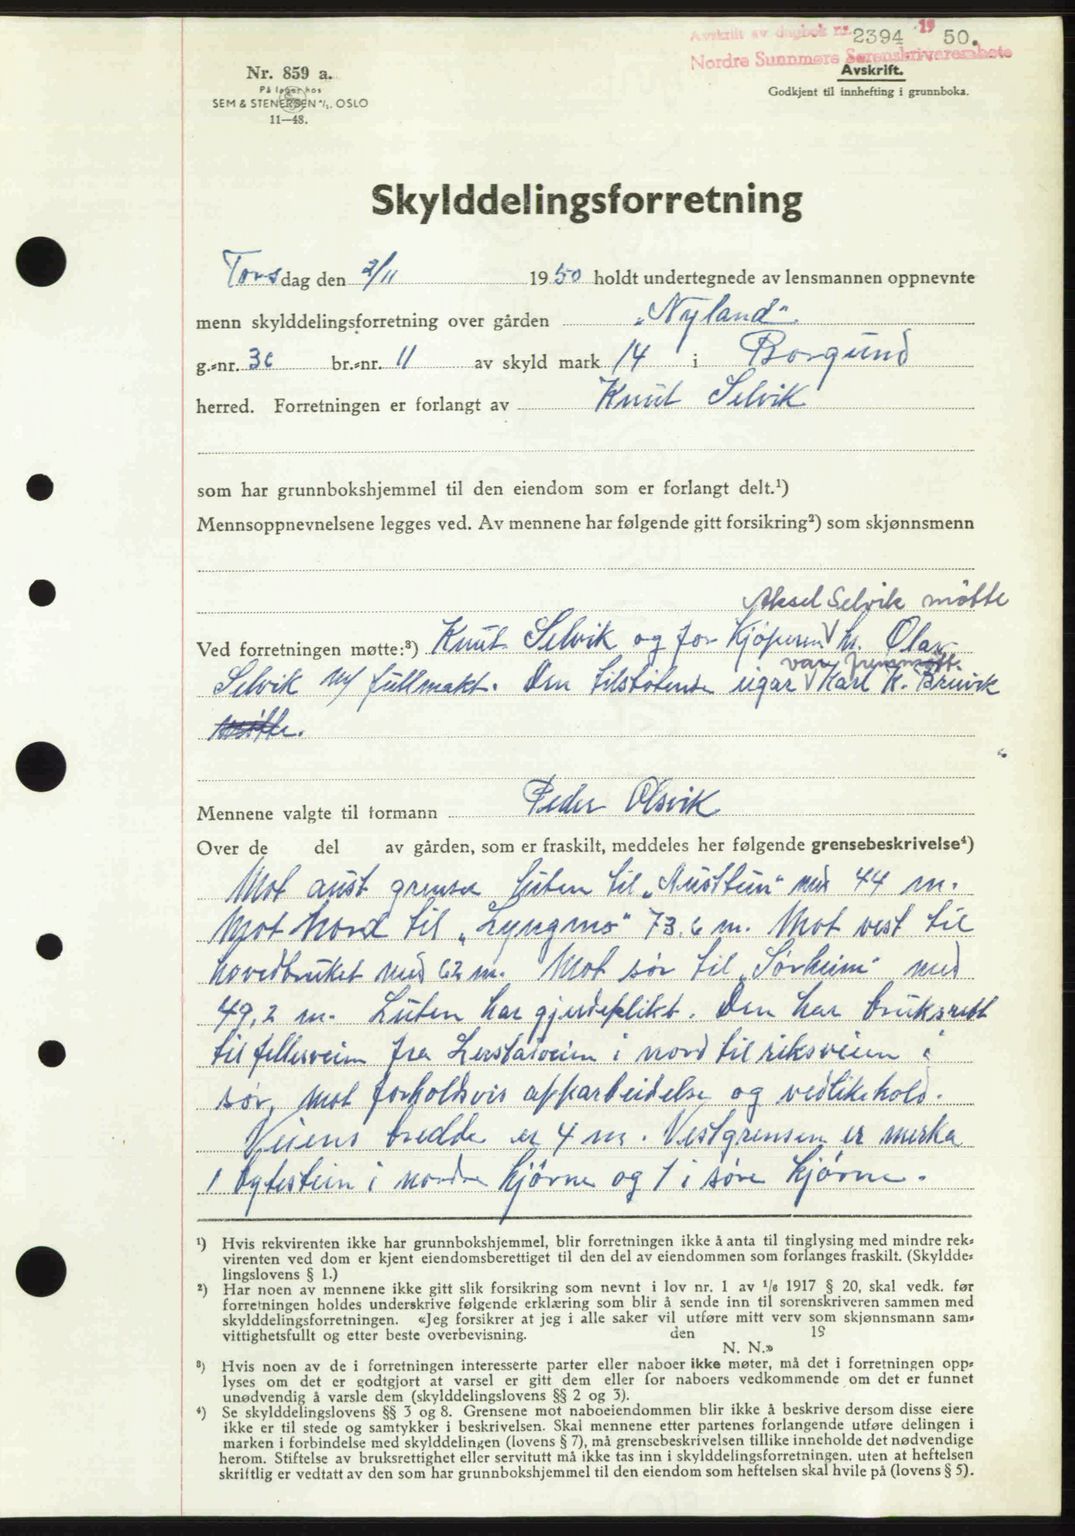 Avskrift av dagbok nr. 2394 19 50.
Nordre Sunnmøre Sorenskrivarembete
Nr. 859 a.
På lager hos
SEM & STENERSEN A/S. OSLO
11—48.
Avskrift.
Godkjent til innhefting i grunnboka.
Skylddelingsforretning
Torsdag den 2/11 1950 holdt undertegnede av lensmannen oppnevnte
menn skylddelingsforretning over gården „Nyland“
g.-nr. 30 br.-nr. 11 av skyld mark 14 i Borgund
herred. Forretningen er forlangt av Knut Selvik
som har grunnbokshjemmel til den eiendom som er forlangt delt.¹)
Mennsoppnevnelsene legges ved. Av mennene har følgende gitt forsikring²) som skjønnsmenn
Aksel Selvik møtte
Ved forretningen møtte:³) Knut Selvik og for kjøperen V hr. Olav
var frammøtt.
Selvik m/ fullmakt. Den tilstøtende eigar V Karl K. Bruvik
møtte.
Mennene valgte til formann Peder Olsvik
Over de del av gården, som er fraskilt, meddeles her følgende grensebeskrivelse⁴)
Mot aust grenser luten til „Austtun“ med 44 m.
Mot nord til „Lyngmo“ 73.6 m. Mot vest til
hovedbruket med 62 m. Mot sør til „Sørheim“ med
49,2 m. Luten har gjerdeplikt. Den har bruksrett
til fellesveien fra Lerstadveien i nord til riksveien i
sør, mot forholdsvis opparbeidelse og vedlikehold.
Veiens bredde er 4 m. Vestgrensen er merka
1 bytestein i nordre hjørne og 1 i søre hjørne.
¹) Hvis rekvirenten ikke har grunnbokshjemmel, blir forretningen ikke å anta til tinglysing med mindre rek-
virenten ved dom er kjent eiendomsberettiget til den del av eiendommen som forlanges fraskilt. (Skyldde-
lingslovens § 1.)
²) Har noen av mennene ikke gitt slik forsikring som nevnt i lov nr. 1 av 1/6 1917 § 20, skal vedk. før
forretningen holdes underskrive følgende erklæring som blir å sende inn til sorenskriveren sammen med
skylddelingsforretningen. «Jeg forsikrer at jeg i alle saker vil utføre mitt verv som skjønnsmann sam-
vittighetsfullt og etter beste overbevisning. den 19
N. N.»
³) Hvis noen av de i forretningen interesserte parter eller naboer ikke møter, må det i forretningen opp-
lyses om det er godtgjort at varsel er gitt dem eller for naboers vedkommende om det er funnet
unødvendig å varsle dem (skylddelingslovens §§ 2 og 3).
⁴) Se skylddelingslovens §§ 3 og 8. Grensene mot naboeiendommen blir ikke å beskrive dersom disse eiere
ikke er til stede og samtykker i beskrivelsen. Skal mennene etter partenes forlangende utføre delingen i
marken i forbindelse med skylddelingen (lovens § 7), må grensebeskrivelsen tillike inneholde det nødvendige
herom. Stiftelse av bruksrettighet eller servitutt må ikke tas inn i skylddelingsforretningen. uten at heftelsen
skriftlig er vedtatt av den som har grunnbokshjemmel til den eiendom som heftelsen skal hvile på (lovens § 5).